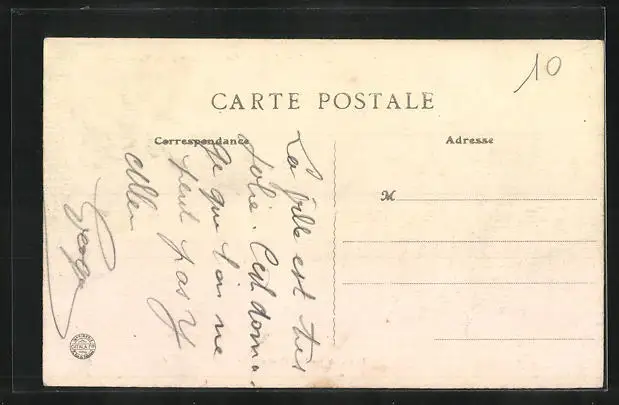 10
CARTE POSTALE
Correspondance
Adresse
M
La ville est très
jolie. C'est doma
ge que l'on ne
peut pas y
aller
George